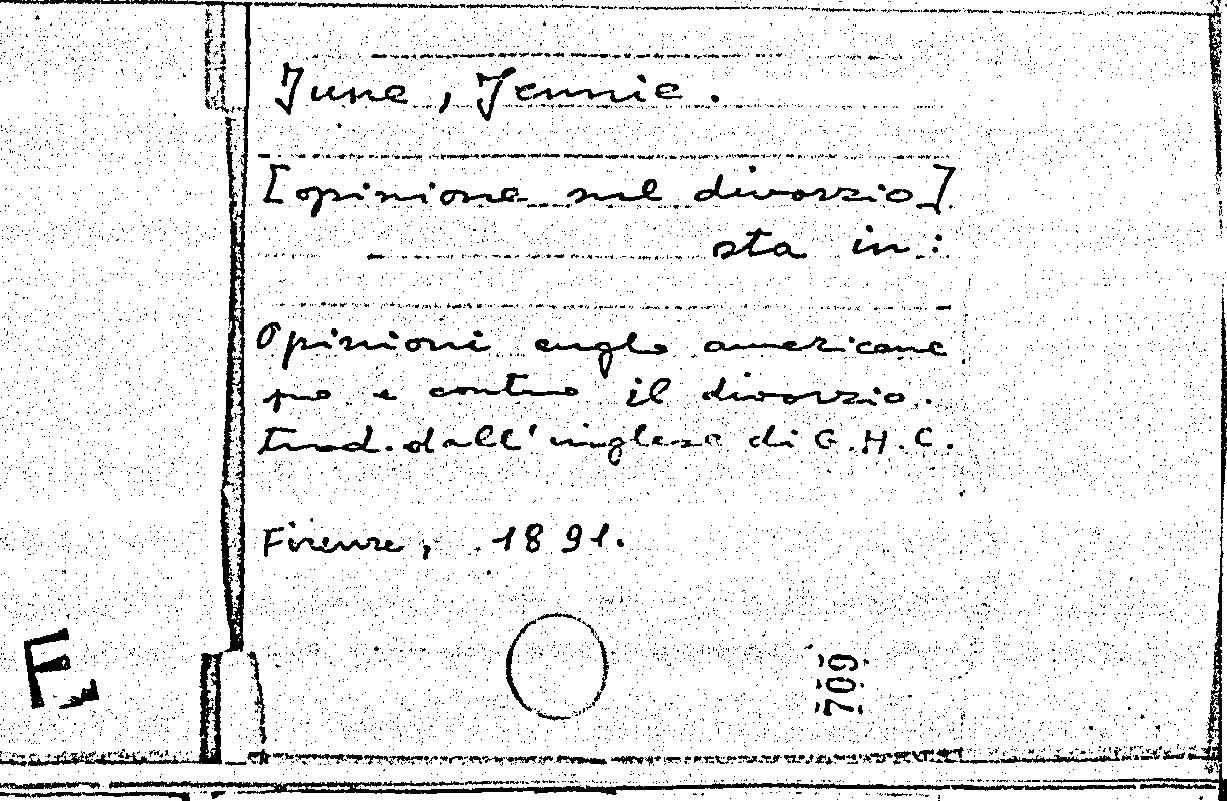 June, Jennie.
[opinione sul divorzio]
sta in:
Opinioni anglo americane
pro e contro il divorzio.
trad. dall'inglese di G.H.C.
Firenze, 1891.
709